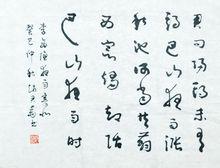 君问归期未有
期巴山夜雨
涨秋池何当共剪
西窗烛却话
巴山夜雨时
李商隐夜雨寄北
癸巳仲秋